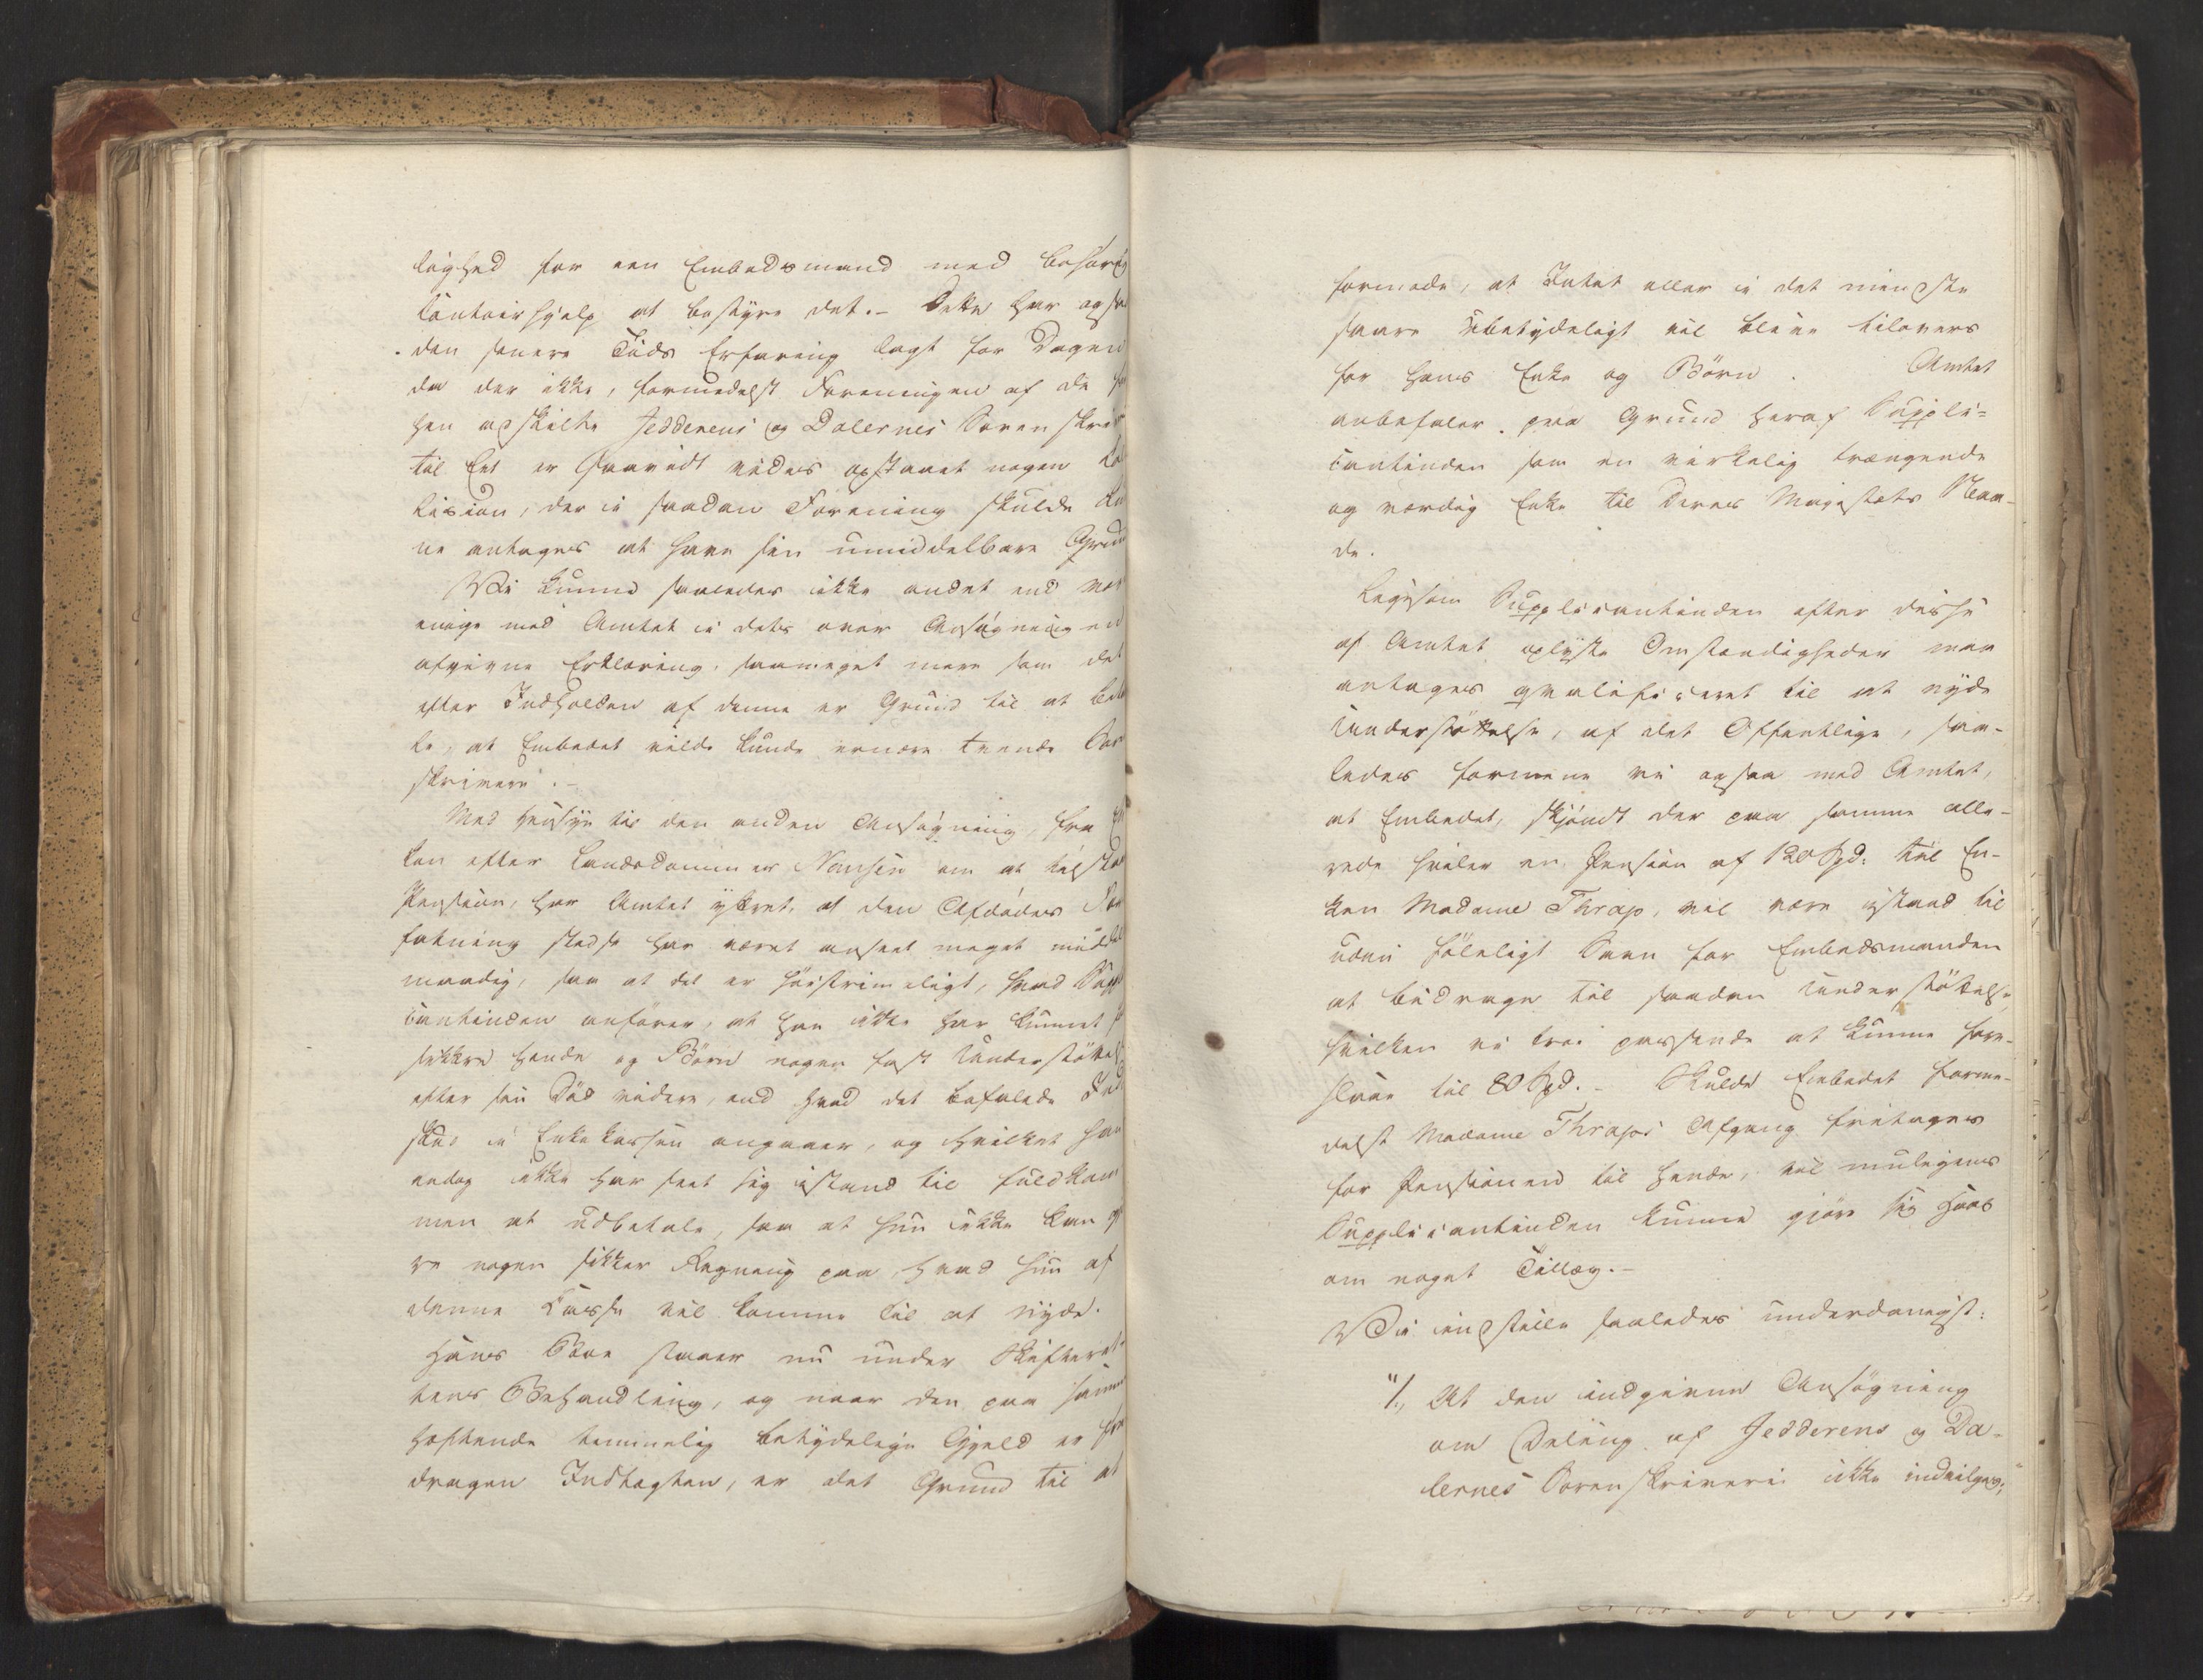 lighed for een Embedsmand med behørig
Contoirhjelp at bestyre det.- Dette har ogsaa
den senere Tids Erfaring lagt for Dagen
da der ikke, formedelst Foreningen af de for
hen adskilte Jedderens og Dalernes Sorenskriveri
til Eet er saavidt vides opstaaet nogen Kol
lision, der i saadan Forening skulde kun
ne antages at have sin umiddelbare Grund
Vi kunne saaledes ikke andet end være
enige med Amtet i dets over Ansøgningen
afgivne Erklæring, saameget mere som det
efter Indholden af denne er Grund til at
at Embedet vilde kunde ernære tvende Soren
skrivere.-
Med Hensyn til den anden Ansøgning, fra En
ken efter Landsdommer Nansen om at tilstaaes
Pension, har Amtet yttret, at den Afdødes For
fatning stedse har været anseet meget middel
maadig, saa at det er høist rimeligt, hvad Suppli
cantinden anfører, at han ikke har kunnet for
sikkre hende og Børn nogen fast Understøttelse
efter sin Død videre, end hvad det befalede Ind
skud i Enkekassen angaaer, og hvilket han
endog ikke har seet sig istand til fuldkom
men at udbetale, saa at hun ikke kan gjø
re nogen sikker Regning paa, hvad hun af
denne Casse vil komme til at nyde.
Hans Boe staaer nu under Skifteret-
tens Behandling, og naar den paa samme
heftende temmelig betydelige Gjeld er fra
dragen Indtægten, er det Grund til at
formode, at Intet eller i det mindste
saare ubetydeligt vil blive tilovers
for hans Enke og Børn. Amtet
anbefaler paa Grund heraf Suppli=
cantinden som en virkelig trængende
og værdig Enke til Deres Majestæts Naa-
de.
Ligesom Supplicantinden efter disse
af Amtet oplyste Omstændigheder maa
antages qvalificeret til at nyde
Understøttelse, af det Offentlige, saa-
ledes formene vi ogsaa med Amtet,
at Embedet, skjøndt der paa samme alle-
rede hviler en Pension af 120 Spd: til En-
ken Madame Thrap, vil være istand til
uden føleligt Savn for Embedsmanden
at bidrage til saadan Understøttelse,
hvilken vi troe passende at kunne fore-
slaae til 80 Spd.- Skulde Embedet forme-
delst Madame Thraps Afgang fritages
for Pensionen til hende, vil muligens
Supplicantinden kunne gjøre sig Haab
om noget Tillæg.-
Vi indstille saaledes underdanigst:
"1., At den indgivne Ansøgning
om Deling af Jedderens og Da-
lernes Sorenskriveri ikke indvilges;"